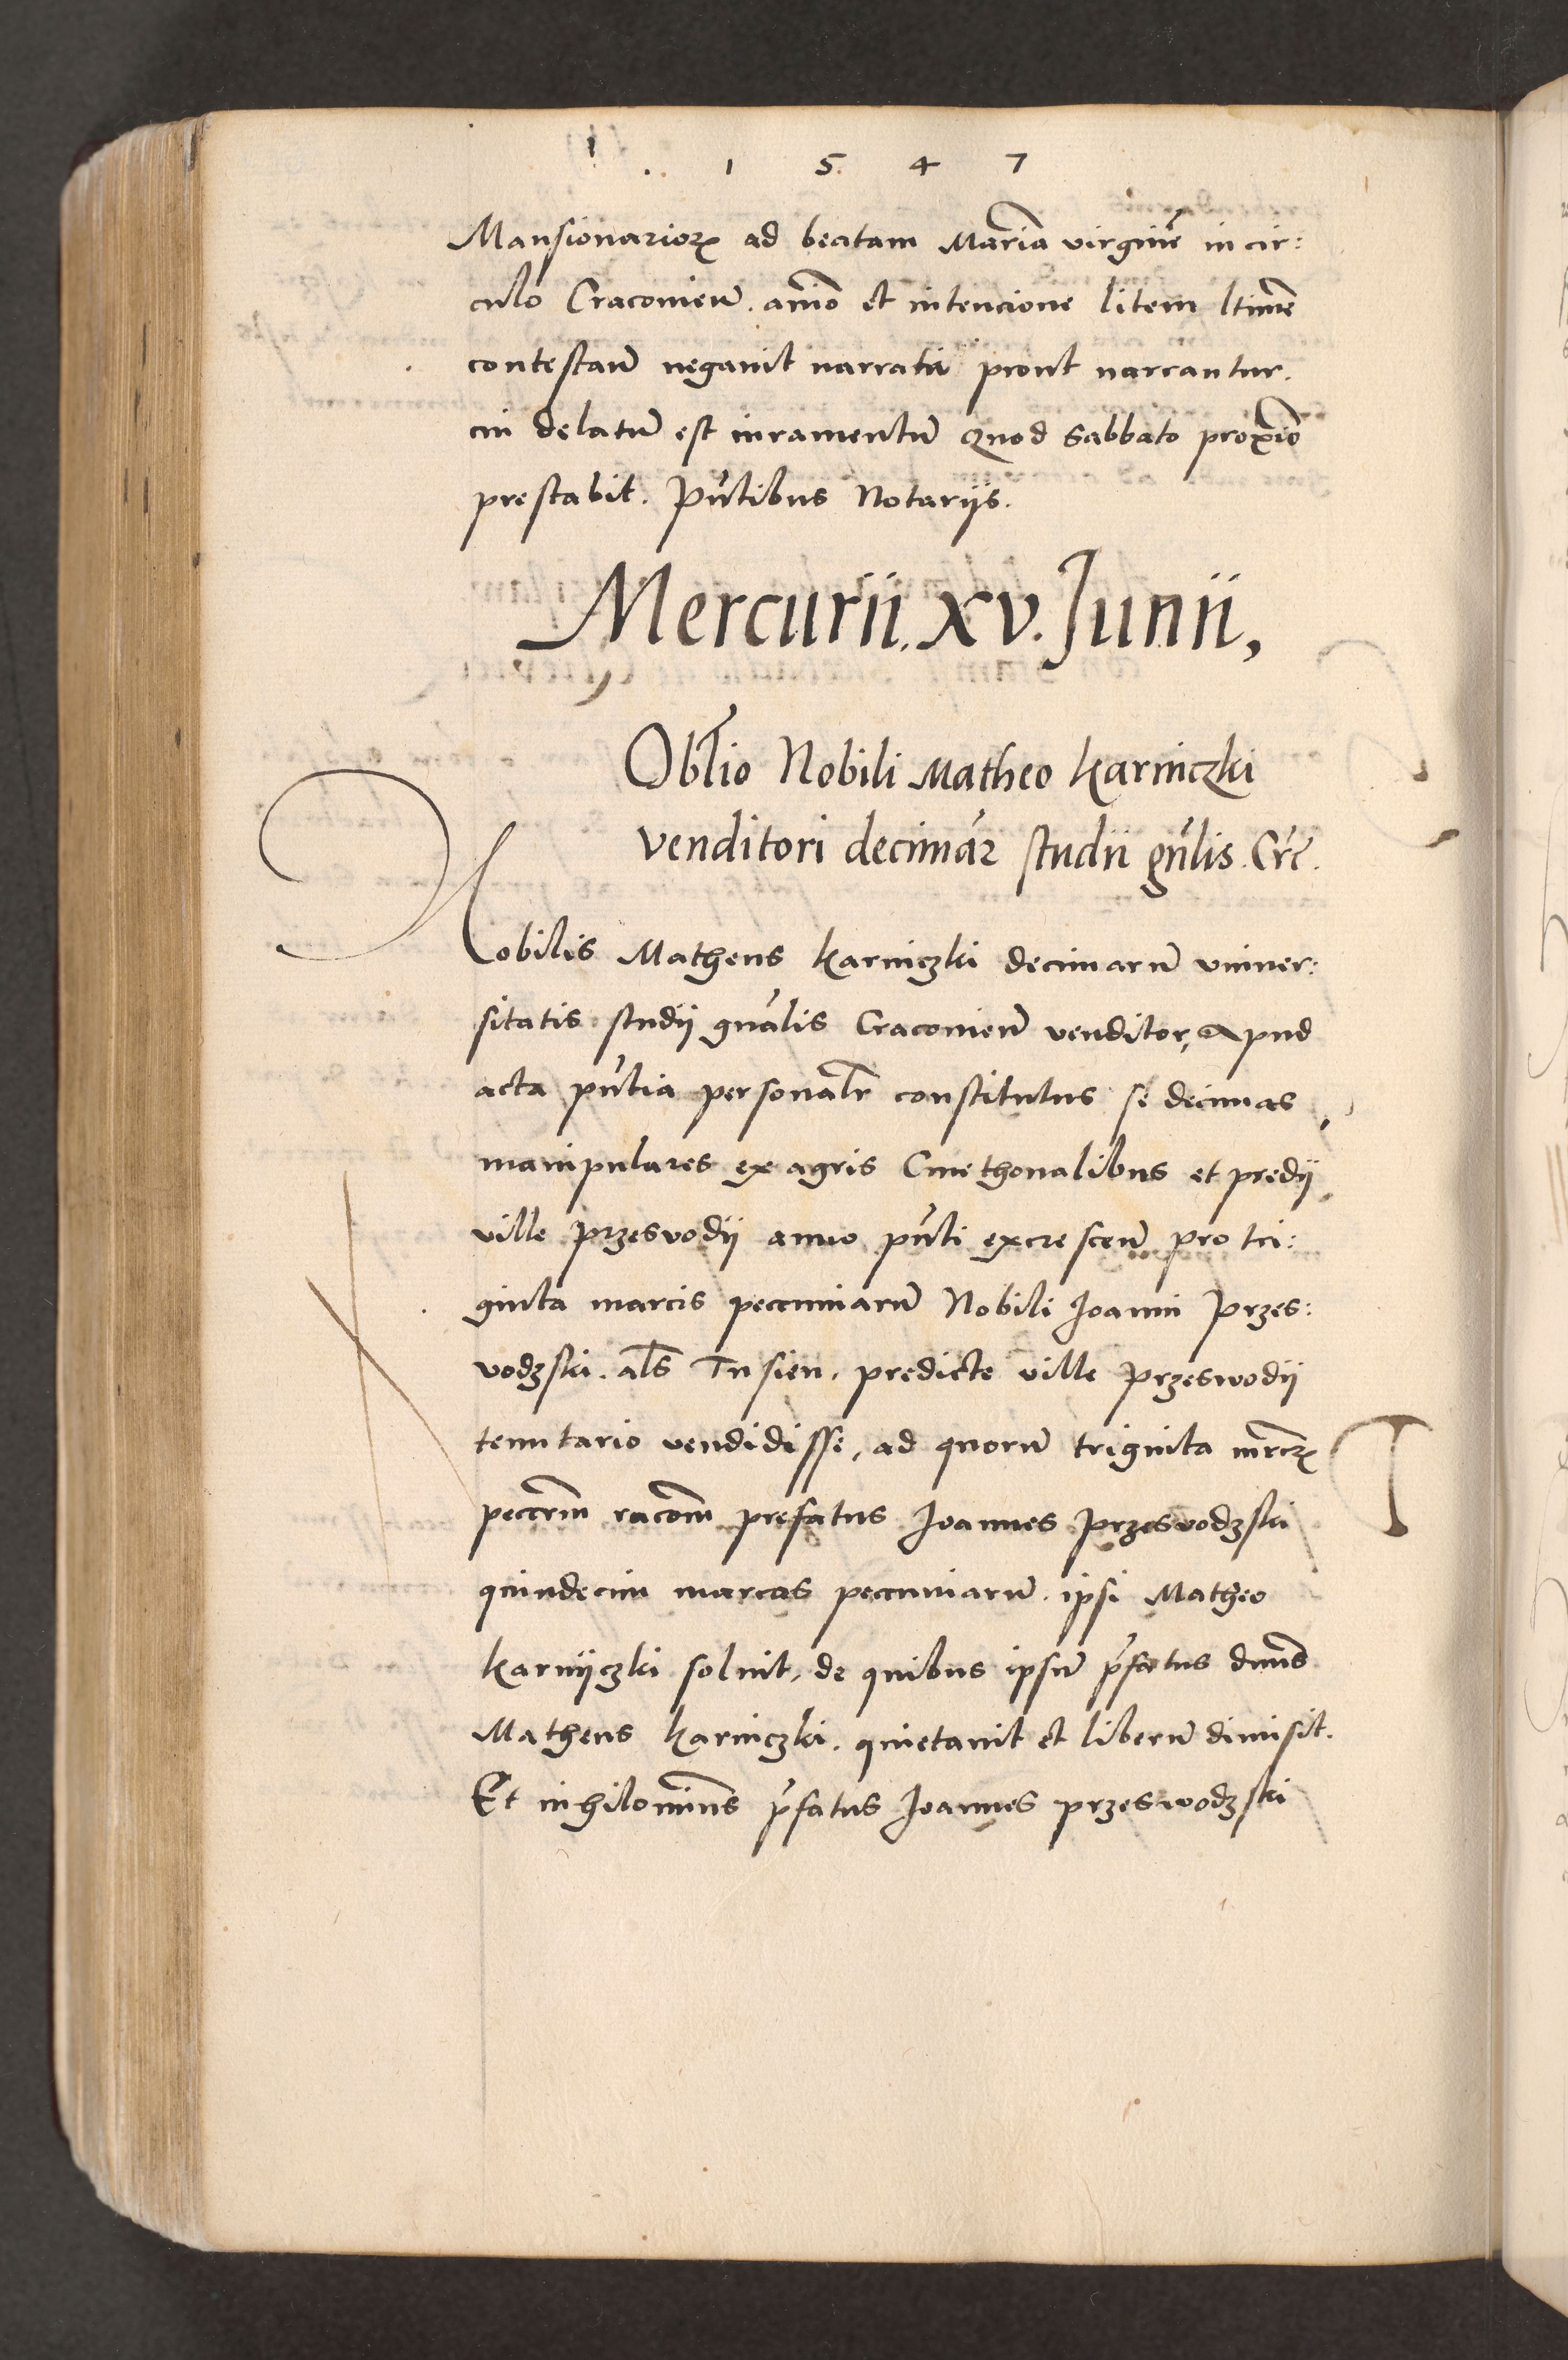 1 5 4 7
Mansionarioꝝ ad beatam Mariā virginē in cir:
culo Cracovien̄. aīmo et intencione litem ltīme
contestan̄ negavit narrata prout narrantur.
cui delatū est iuramentū Quod Sabbato proxīo
prestabit. Pn̄tibus Notariis.
Mercurii. xv. Junii,
Obl̄io Nobili Matheo Karniczki
venditori decimaꝝ studii gn̄lis. Crc̄.
Nobilis Matheus Karniczki decimarū univer:
sitatis studij gn̄alis Cracovien̄ venditor, Apud
acta pn̄tia personalr̄ constitutus se decimas
manipulares ex agris Cmethonalibus et predij
ville Przesvodij anno pn̄ti excrescen̄ pro tri:
ginta marcis pecuniarū Nobili Joanni Przes:
vodzski. al̄s Tnsien. predicte ville Przeswodij
tenutario vendidisse, ad quorū triginta mrcꝝ
peccrm̄ racōm prefatus Joannes Przesvodzski
quindecim marcas pecuniarū. ipsi Matheo
Karnijczki solvit, de quibus ipsū pr̄fatus dnūs
Matheus Karniczki. quietavit et liberū dimisit.
Et nihilomin̄s pr̄fatus Joannes przeswodzski